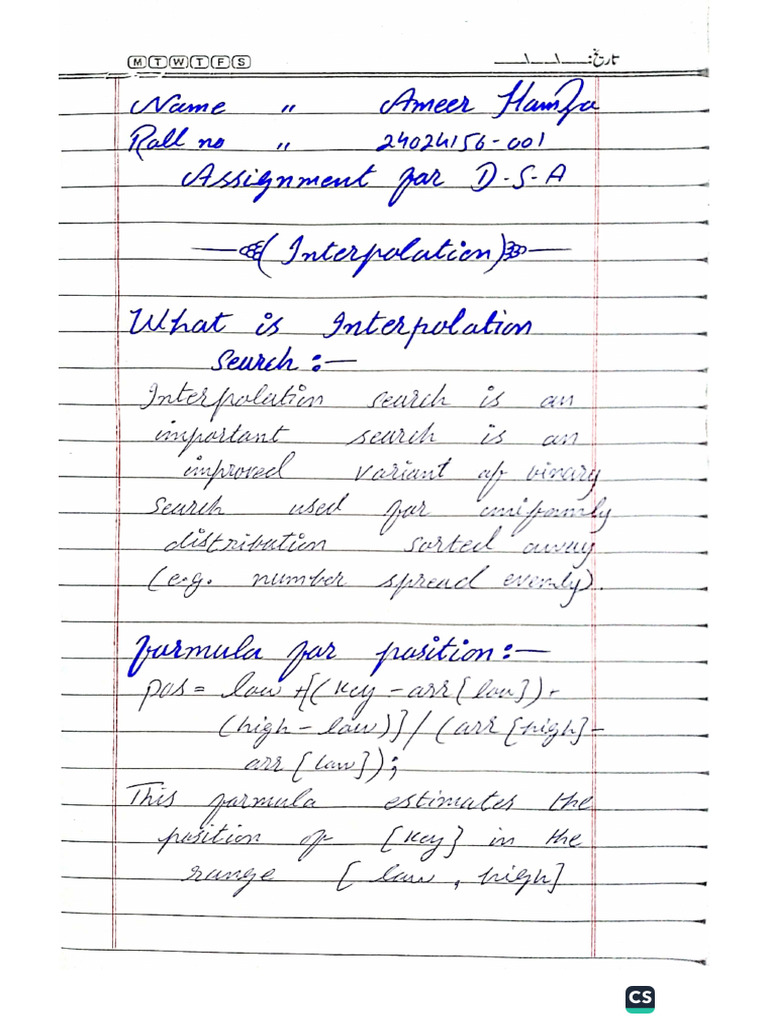 M T W T F S
تاریخ: ___\___\___
Name " Ameer Hamza
Roll no " 24024156-001
Assignment for D-S-A
(Interpolation)
What is Interpolation
search:-
Interpolation search is an
important search is an
improved variant of binary
search used for uniformly
distribution sorted array
(e.g. number spread evenly).
formula for position:-
pos = low +[(key - arr[low]).
(high - low)] / (arr[high]-
arr[low]);
This formula estimates the
position of [key] in the
range [low, high]
CS